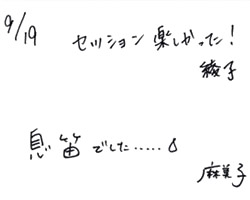 9/19
セッション 楽しかった!
綾子
息笛でした.....♪
麻美子